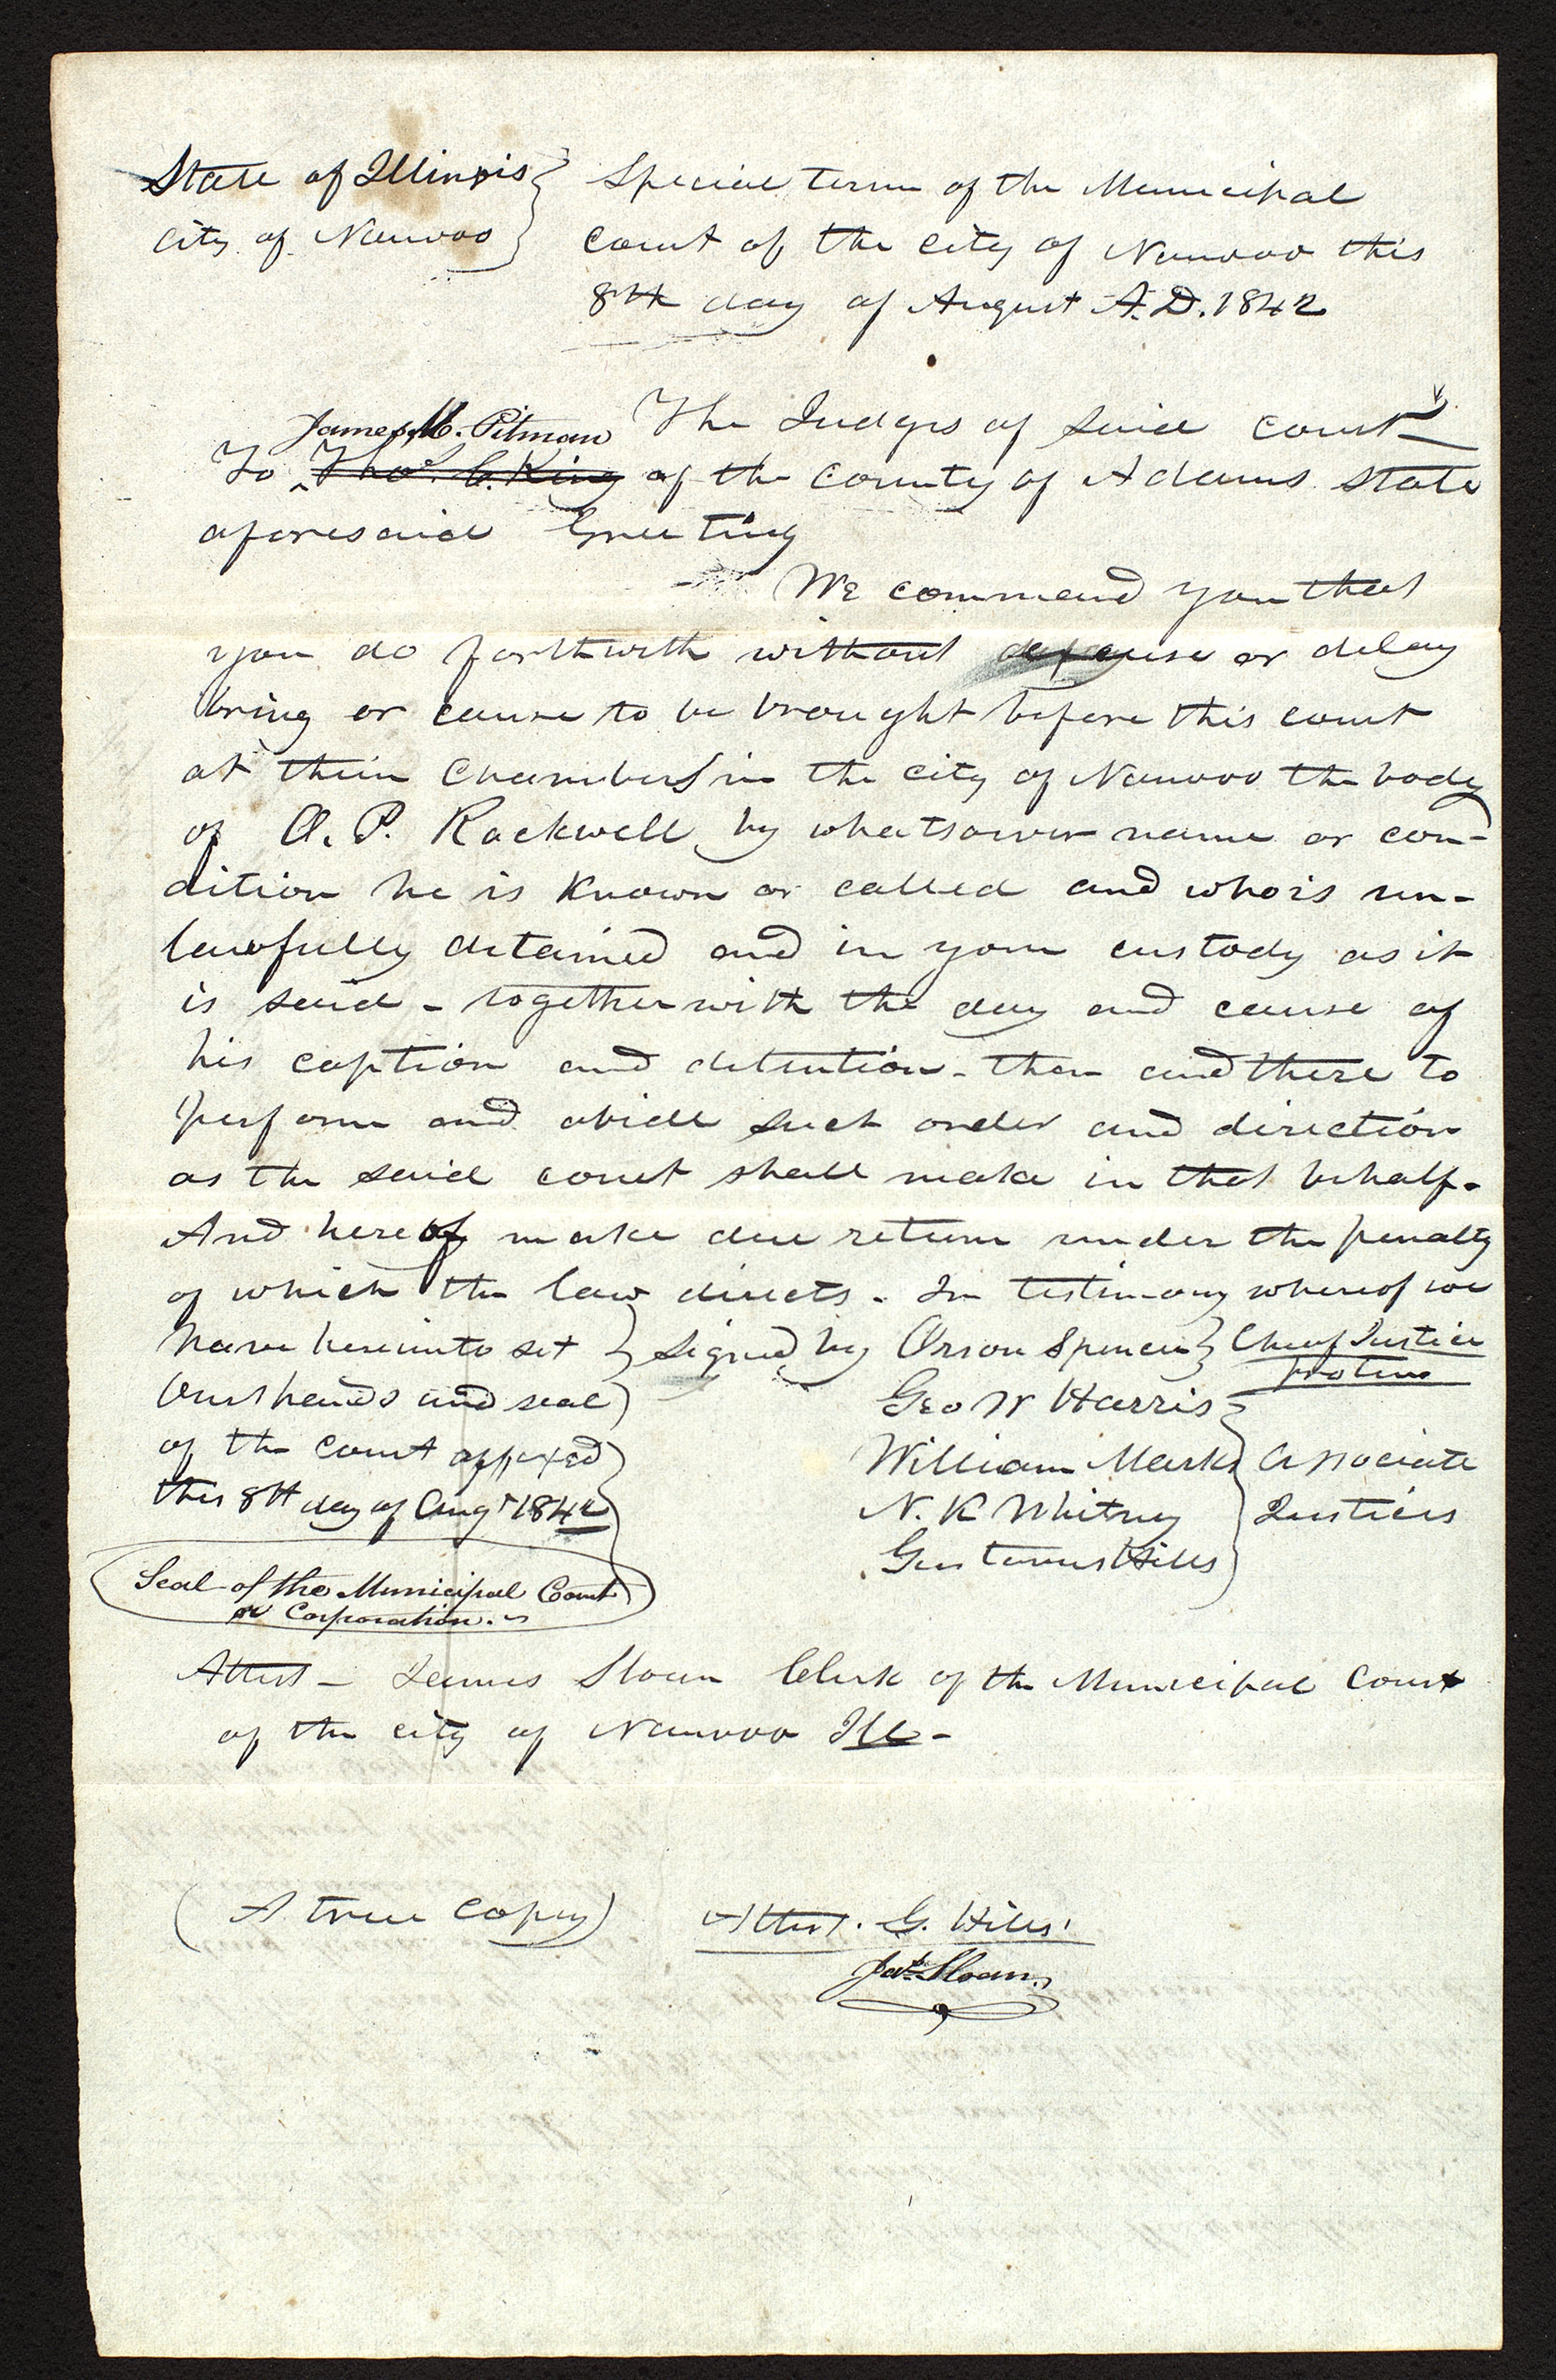 State of Illinois } Special term of the Municipal
City of Nauvoo } court of the city of Nauvoo this
8th day of August A.D. 1842
The Judges of said court
James M. Pitman
To ^ Thos. C. King of the county of Adams State
aforesaid Greeting
We command you that
you do forthwith without or delay
bring or cause to be brought before this court
at their Chambers in the city of Nauvoo the body
of O. P. Rockwell by whatsoever name or con-
dition he is known or called and who is un-
lawfully detained and in your custody as it
is said - together with the day and cause of
his caption and detention - then and there to
perform and abide such order and direction
as the said court shall make in that behalf.
And hereof make due return under the penalty
of which the law directs. In testimony whereof we
have hereunto set } signed by Orson Spencer } Chief Justice
protem
Our hands and seal Geo W Harris
of the court affixed William Marks } associate
this 8th day of Augt 1842 N. K Whitney } Justices
Gustavus Hills
Seal of the Municipal Court
or Corporation.
Attest - James Sloan Clerk of the Municipal Court
of the city of Nauvoo Ill -
(A true copy) Attest. G. Hills.
Jas. Sloan.